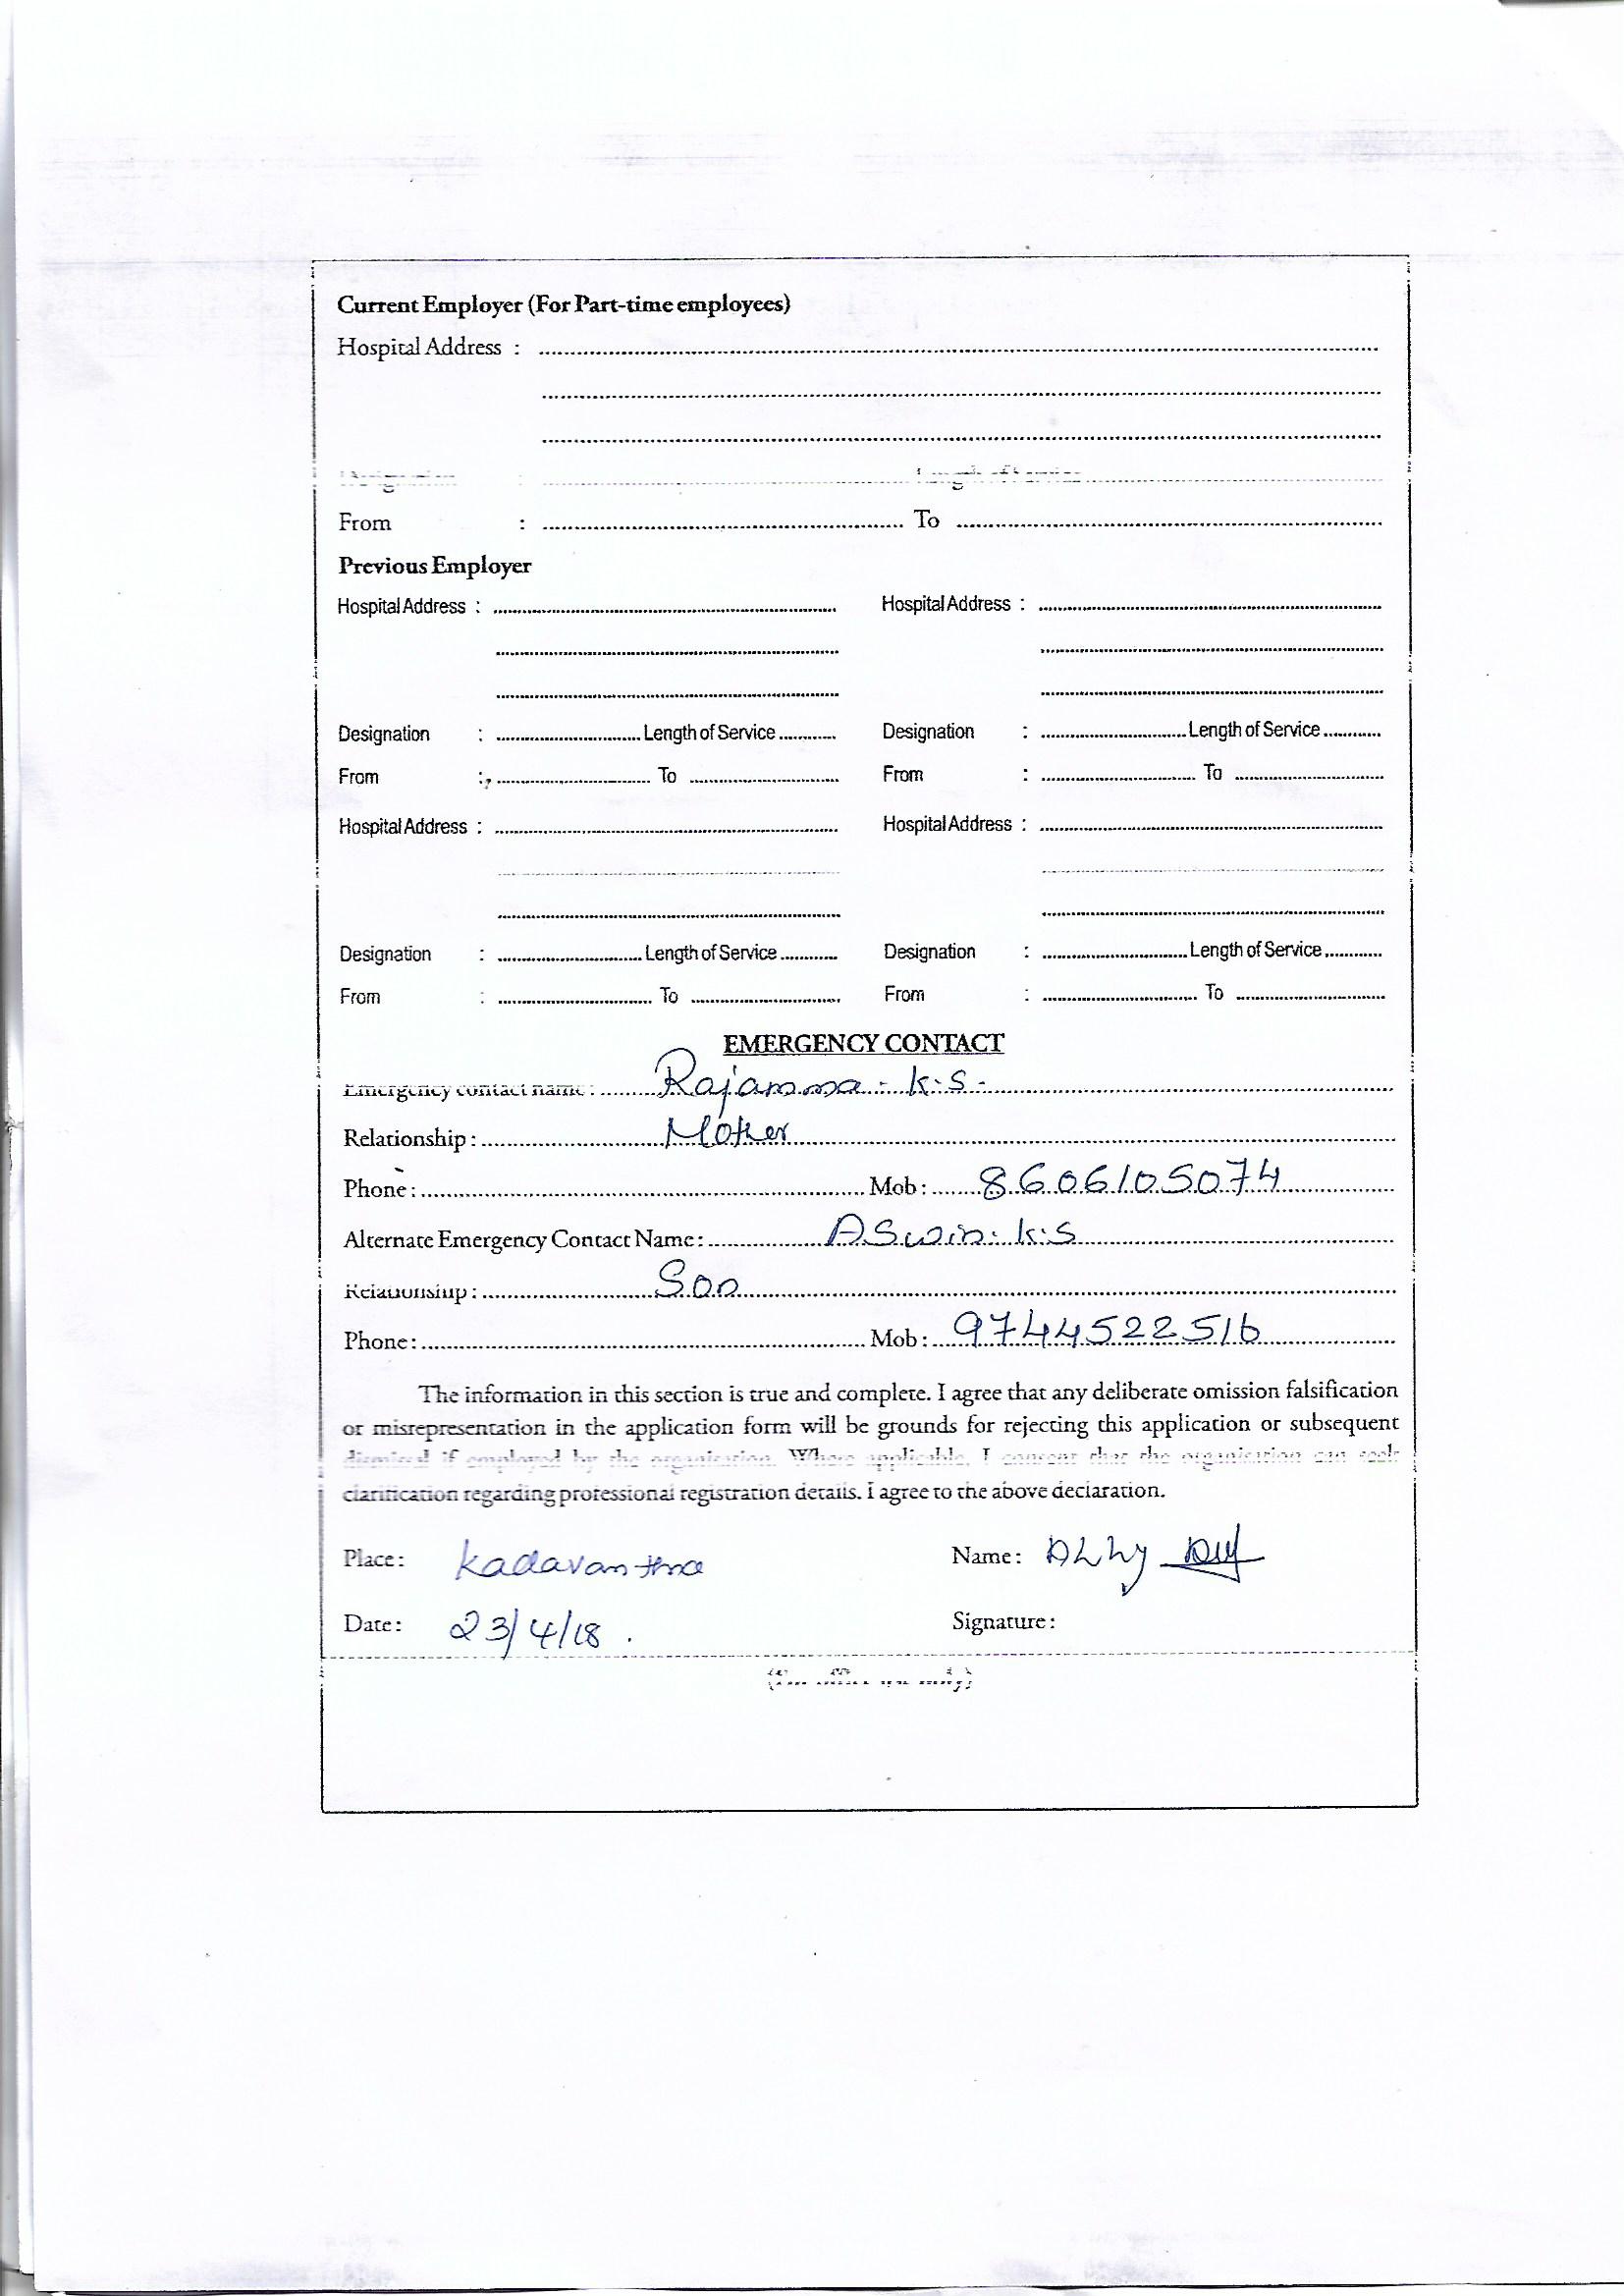 Current Employer (For Part-time employees)
Hospital Address :
Designation : Length of Service
From : To
Previous Employer
Hospital Address : Hospital Address :
Designation : Length of Service Designation : Length of Service
From : To From : To
Hospital Address : Hospital Address :
Designation : Length of Service Designation : Length of Service
From : To From : To
EMERGENCY CONTACT
Emergency contact name : Rajamma - K.S -
Relationship : Mother
Phone : Mob : 8606105074
Alternate Emergency Contact Name : ASwin. K.S
Relationship : Son
Phone : Mob : 9744522516
The information in this section is true and complete. I agree that any deliberate omission falsification
or misrepresentation in the application form will be grounds for rejecting this application or subsequent
dismissal if employed by the organisation. Where applicable, I consent that the organisation can seek
clarification regarding professional registration details. I agree to the above declaration.
Place : Kadavanthra Name :
Date : 23/4/18 . Signature :
(For office use only)